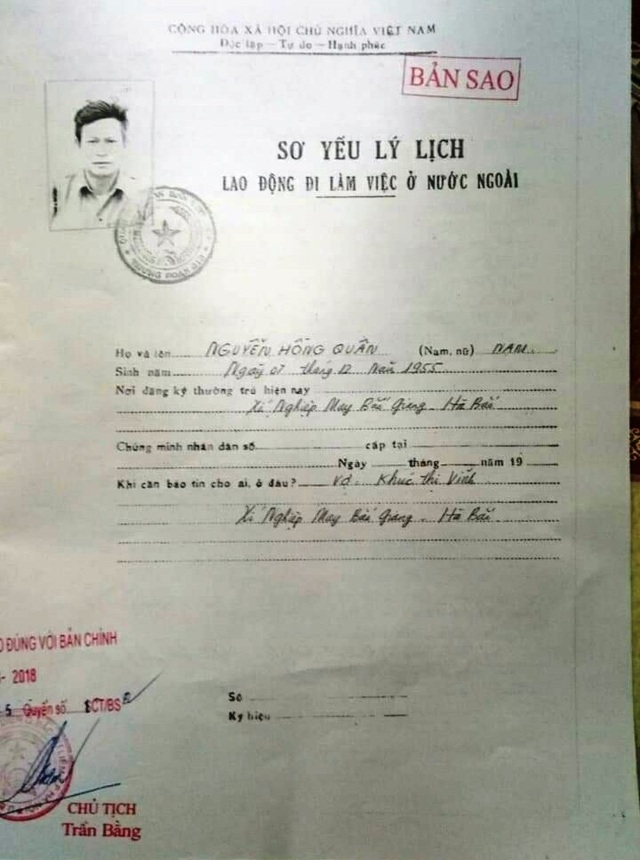 CỘNG HÒA XÃ HỘI CHỦ NGHĨA VIỆT NAM
Độc lập — Tự do — Hạnh phúc
BẢN SAO
SƠ YẾU LÝ LỊCH
LAO ĐỘNG ĐI LÀM VIỆC Ở NƯỚC NGOÀI
Họ và tên NGUYỄN HỒNG QUÂN (Nam, nữ) NAM
Sinh năm Ngày 07 tháng 12 Năm 1955
Nơi đăng ký thường trú hiện nay
Xí Nghiệp May Bắc Giang - Hà Bắc
Chứng minh nhân dân số cấp tại
Ngày tháng năm 19
Khi cần báo tin cho ai, ở đâu? Vợ: Khúc thị Vinh
Xí Nghiệp May Bắc Giang - Hà Bắc
ĐÚNG VỚI BẢN CHÍNH
- 2018
Số
5 Quyển số SCT/BS
Ký hiệu
CHỦ TỊCH
Trần Bằng